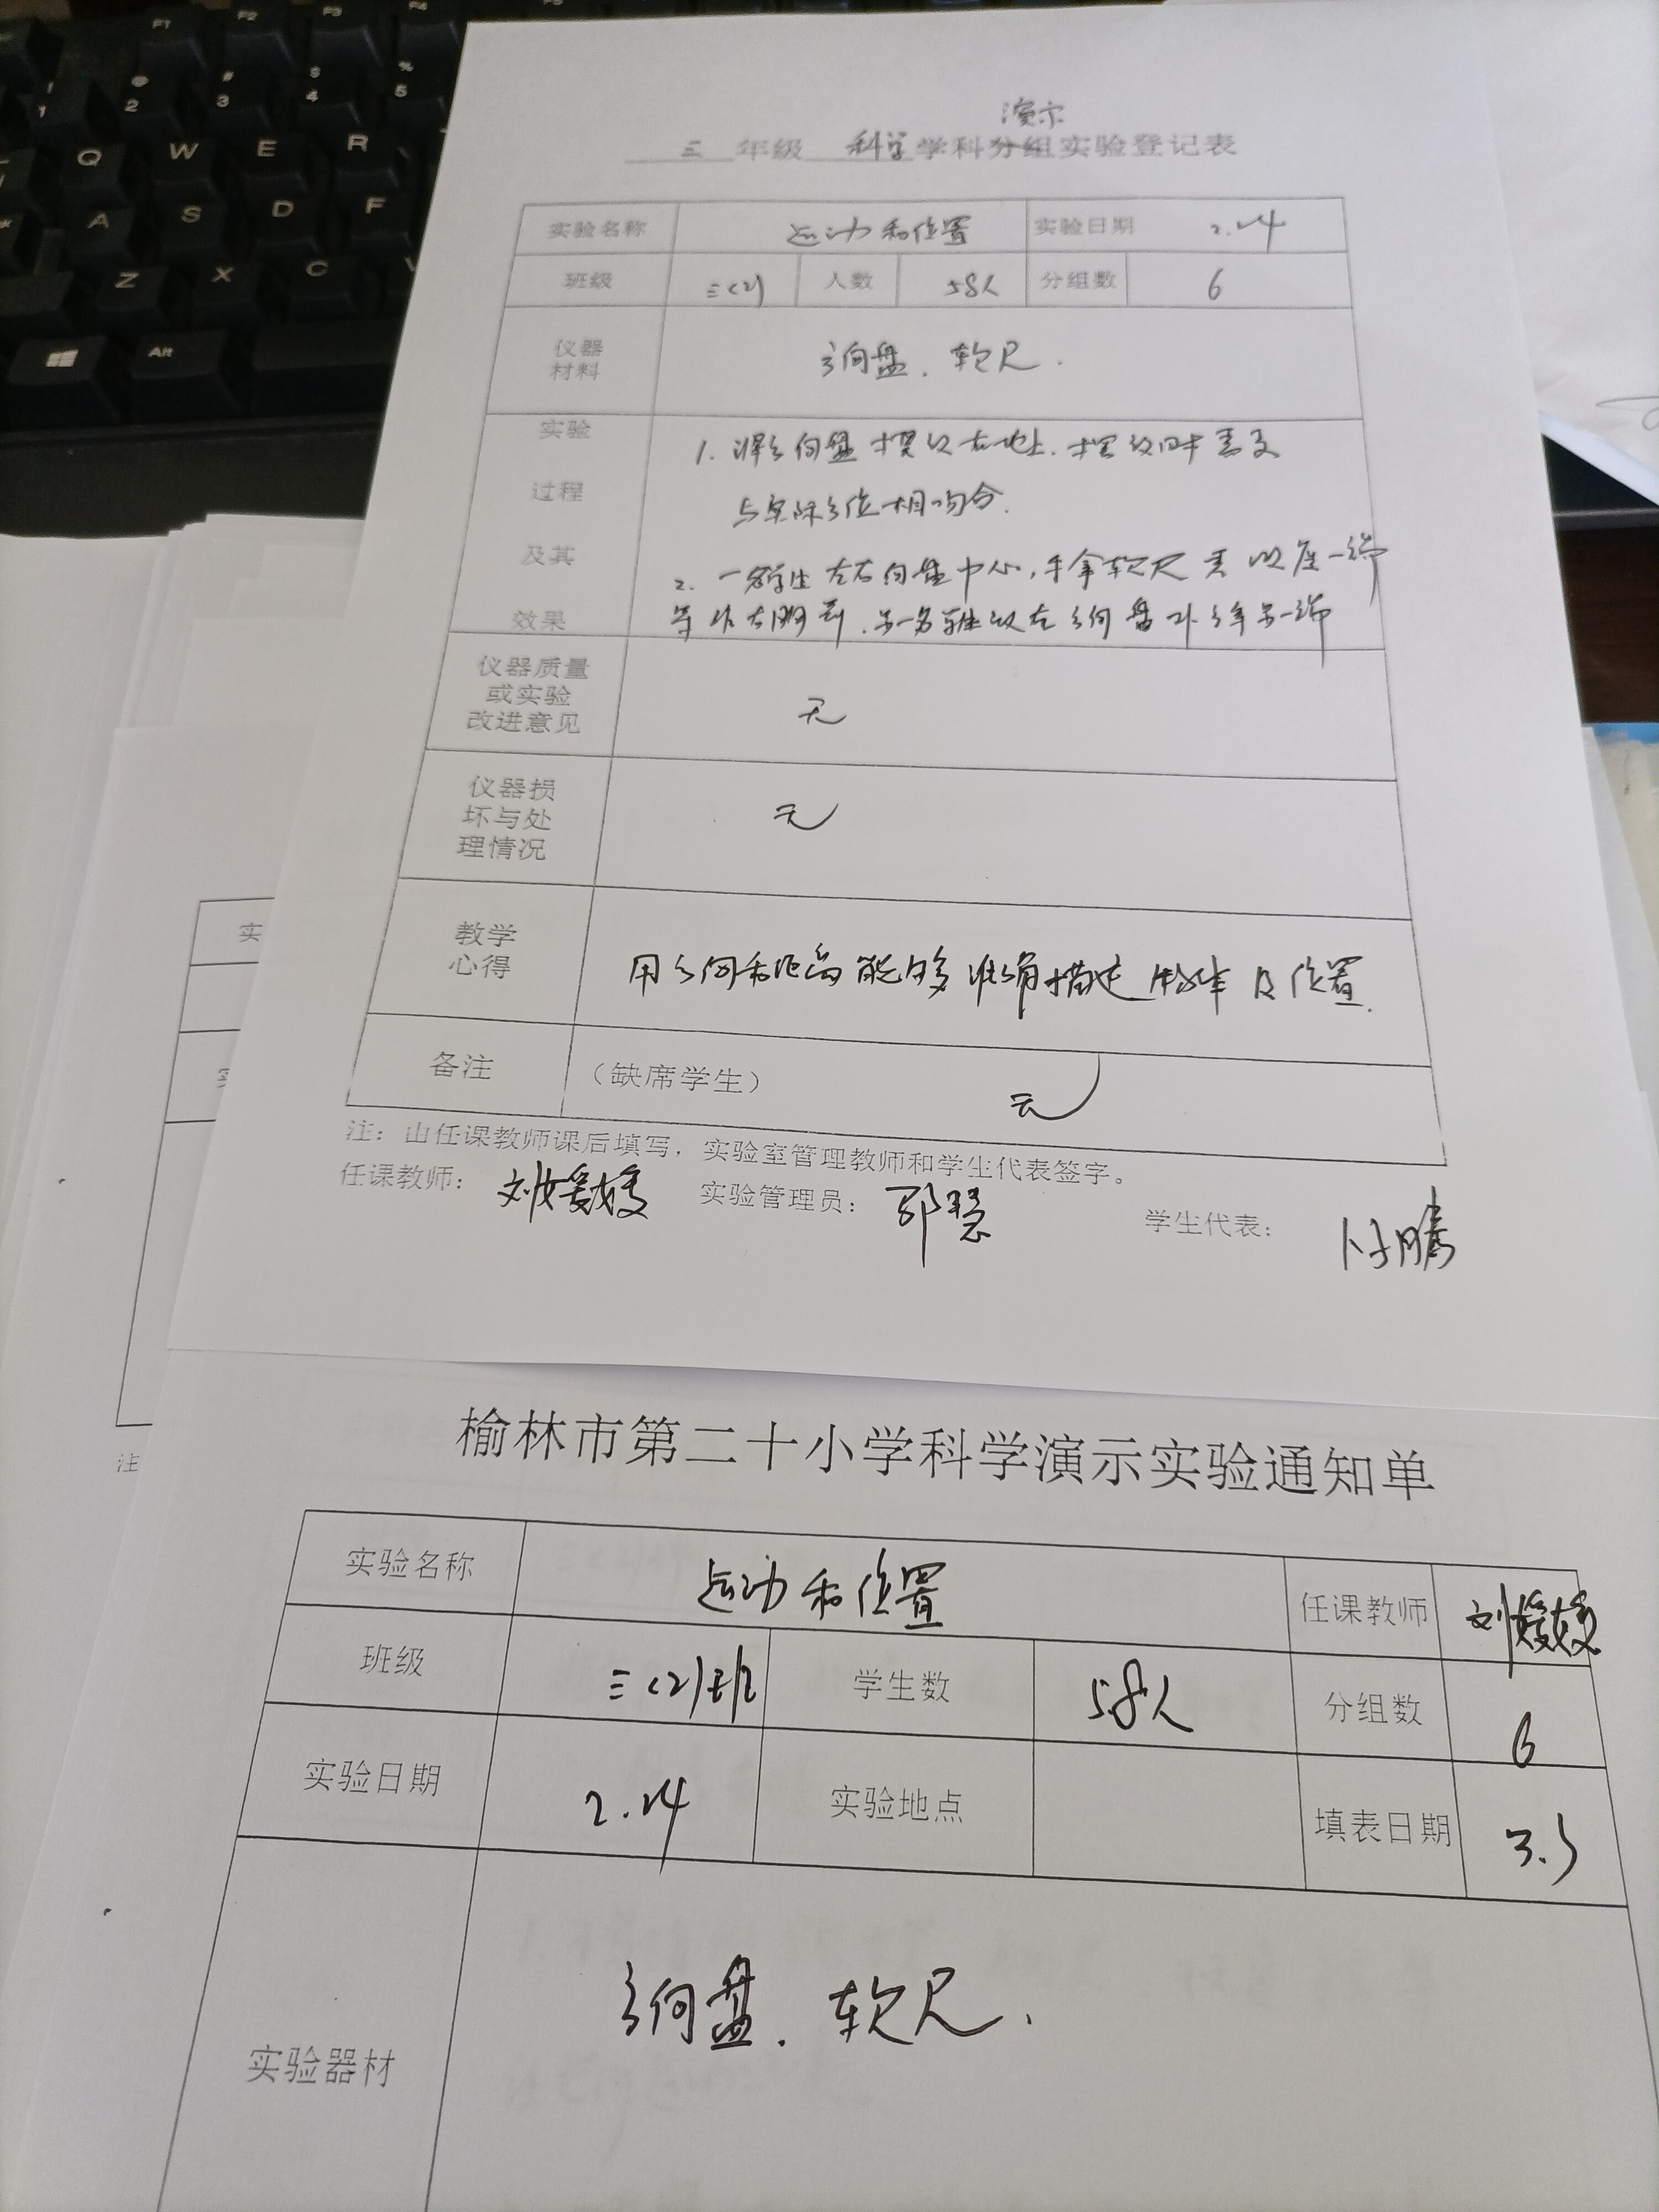 演示
三 年级 科学 学科分组实验登记表
实验名称 运动和位置 实验日期 2.24
班级 三(2) 人数 58人 分组数 6
仪器
材料
方向盘、软尺.
实验
过程
及其
效果
1. 将方向盘摆放在地上.摆放时要
与实际方位相吻合.
2. 一名学生 中心,手拿软尺 一端
一端
仪器质量
或实验
改进意见
无
仪器损
坏与处
理情况
无
教学
心得
用方向和距离能够准确描述物体 位置.
备注 (缺席学生) 无
注:由任课教师课后填写,实验室管理教师和学生代表签字。
任课教师: 刘媛媛 实验管理员: 慧 学生代表: 腾
实
注
榆林市第二十小学科学演示实验通知单
实验名称 运动和位置 任课教师 刘媛媛
班级 三(2)班 学生数 58人 分组数 6
实验日期 2.24 实验地点 填表日期 3.5
实验器材 方向盘、软尺.
Q W E R
A S D F
Z X C
Alt